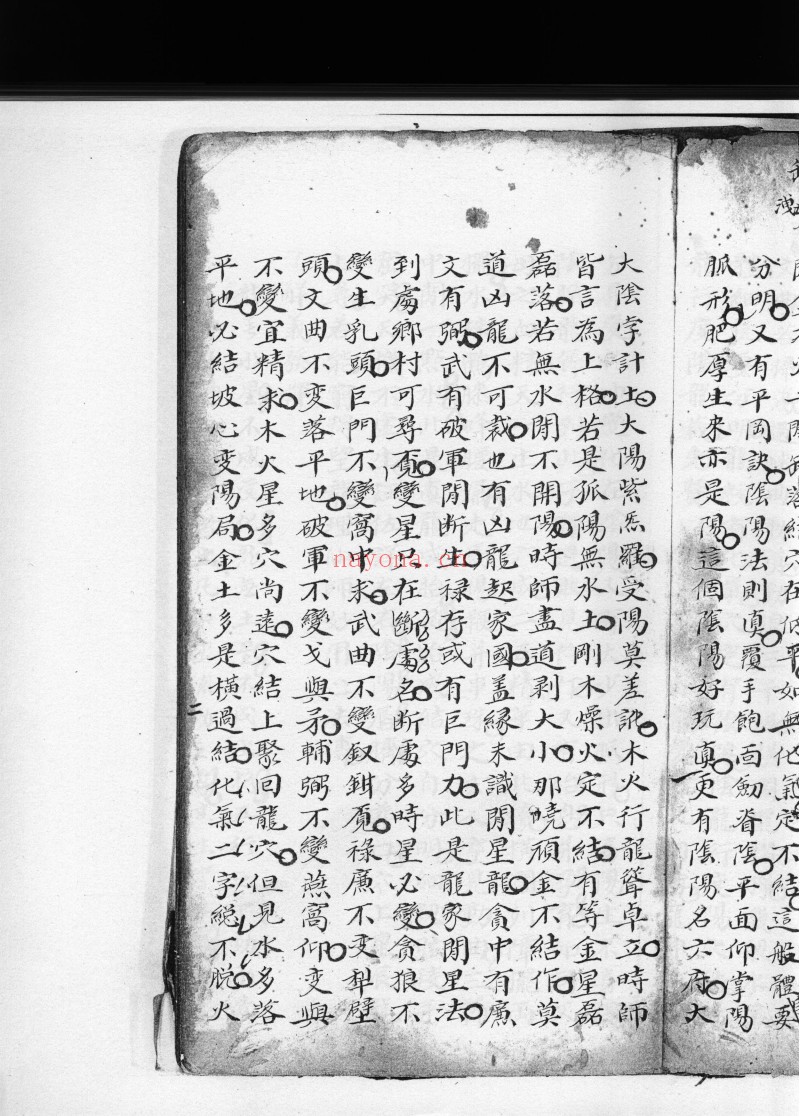 分明又有平岡訣陰陽法則真覆手飽面劒脊陰平面仰掌陽
脈形肥厚生來亦是陽這個陰陽好玩真更有陰陽名六府大
大陰孛計土大陽紫炁羅受陽莫差訛木火行龍聳卓立時師
皆言為上格若是孤陽無水土剛木燥火定不結有等金星磊
磊落若無水閙不開陽時師盡道剥大小那曉頑金不結作莫
道凶龍不可裁也有凶龍起家國盖緣未識閒星龍貪中有廉
文有弼武有破軍閒断生禄存或有巨門力此是龍家閒星法
到處鄉村可尋覔變星只在斷處名断處多時星必變貪狼不
變生乳頭巨門不變窩中求武曲不變釵鉗覔禄廉不变犁壁
頭文曲不变落平地破軍不變戈與矛輔弼不變燕窩仰变與
不變宜精求木火星多穴尚遠穴結上聚回龍穴但見水多落
平地必結坡心变陽局金土多是橫過結化氣二字緫不脫火
二
nayona.cn